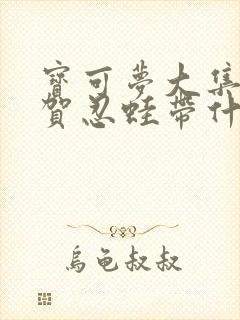 寶可夢大集
賀忍蛙帶什
烏龜叔叔